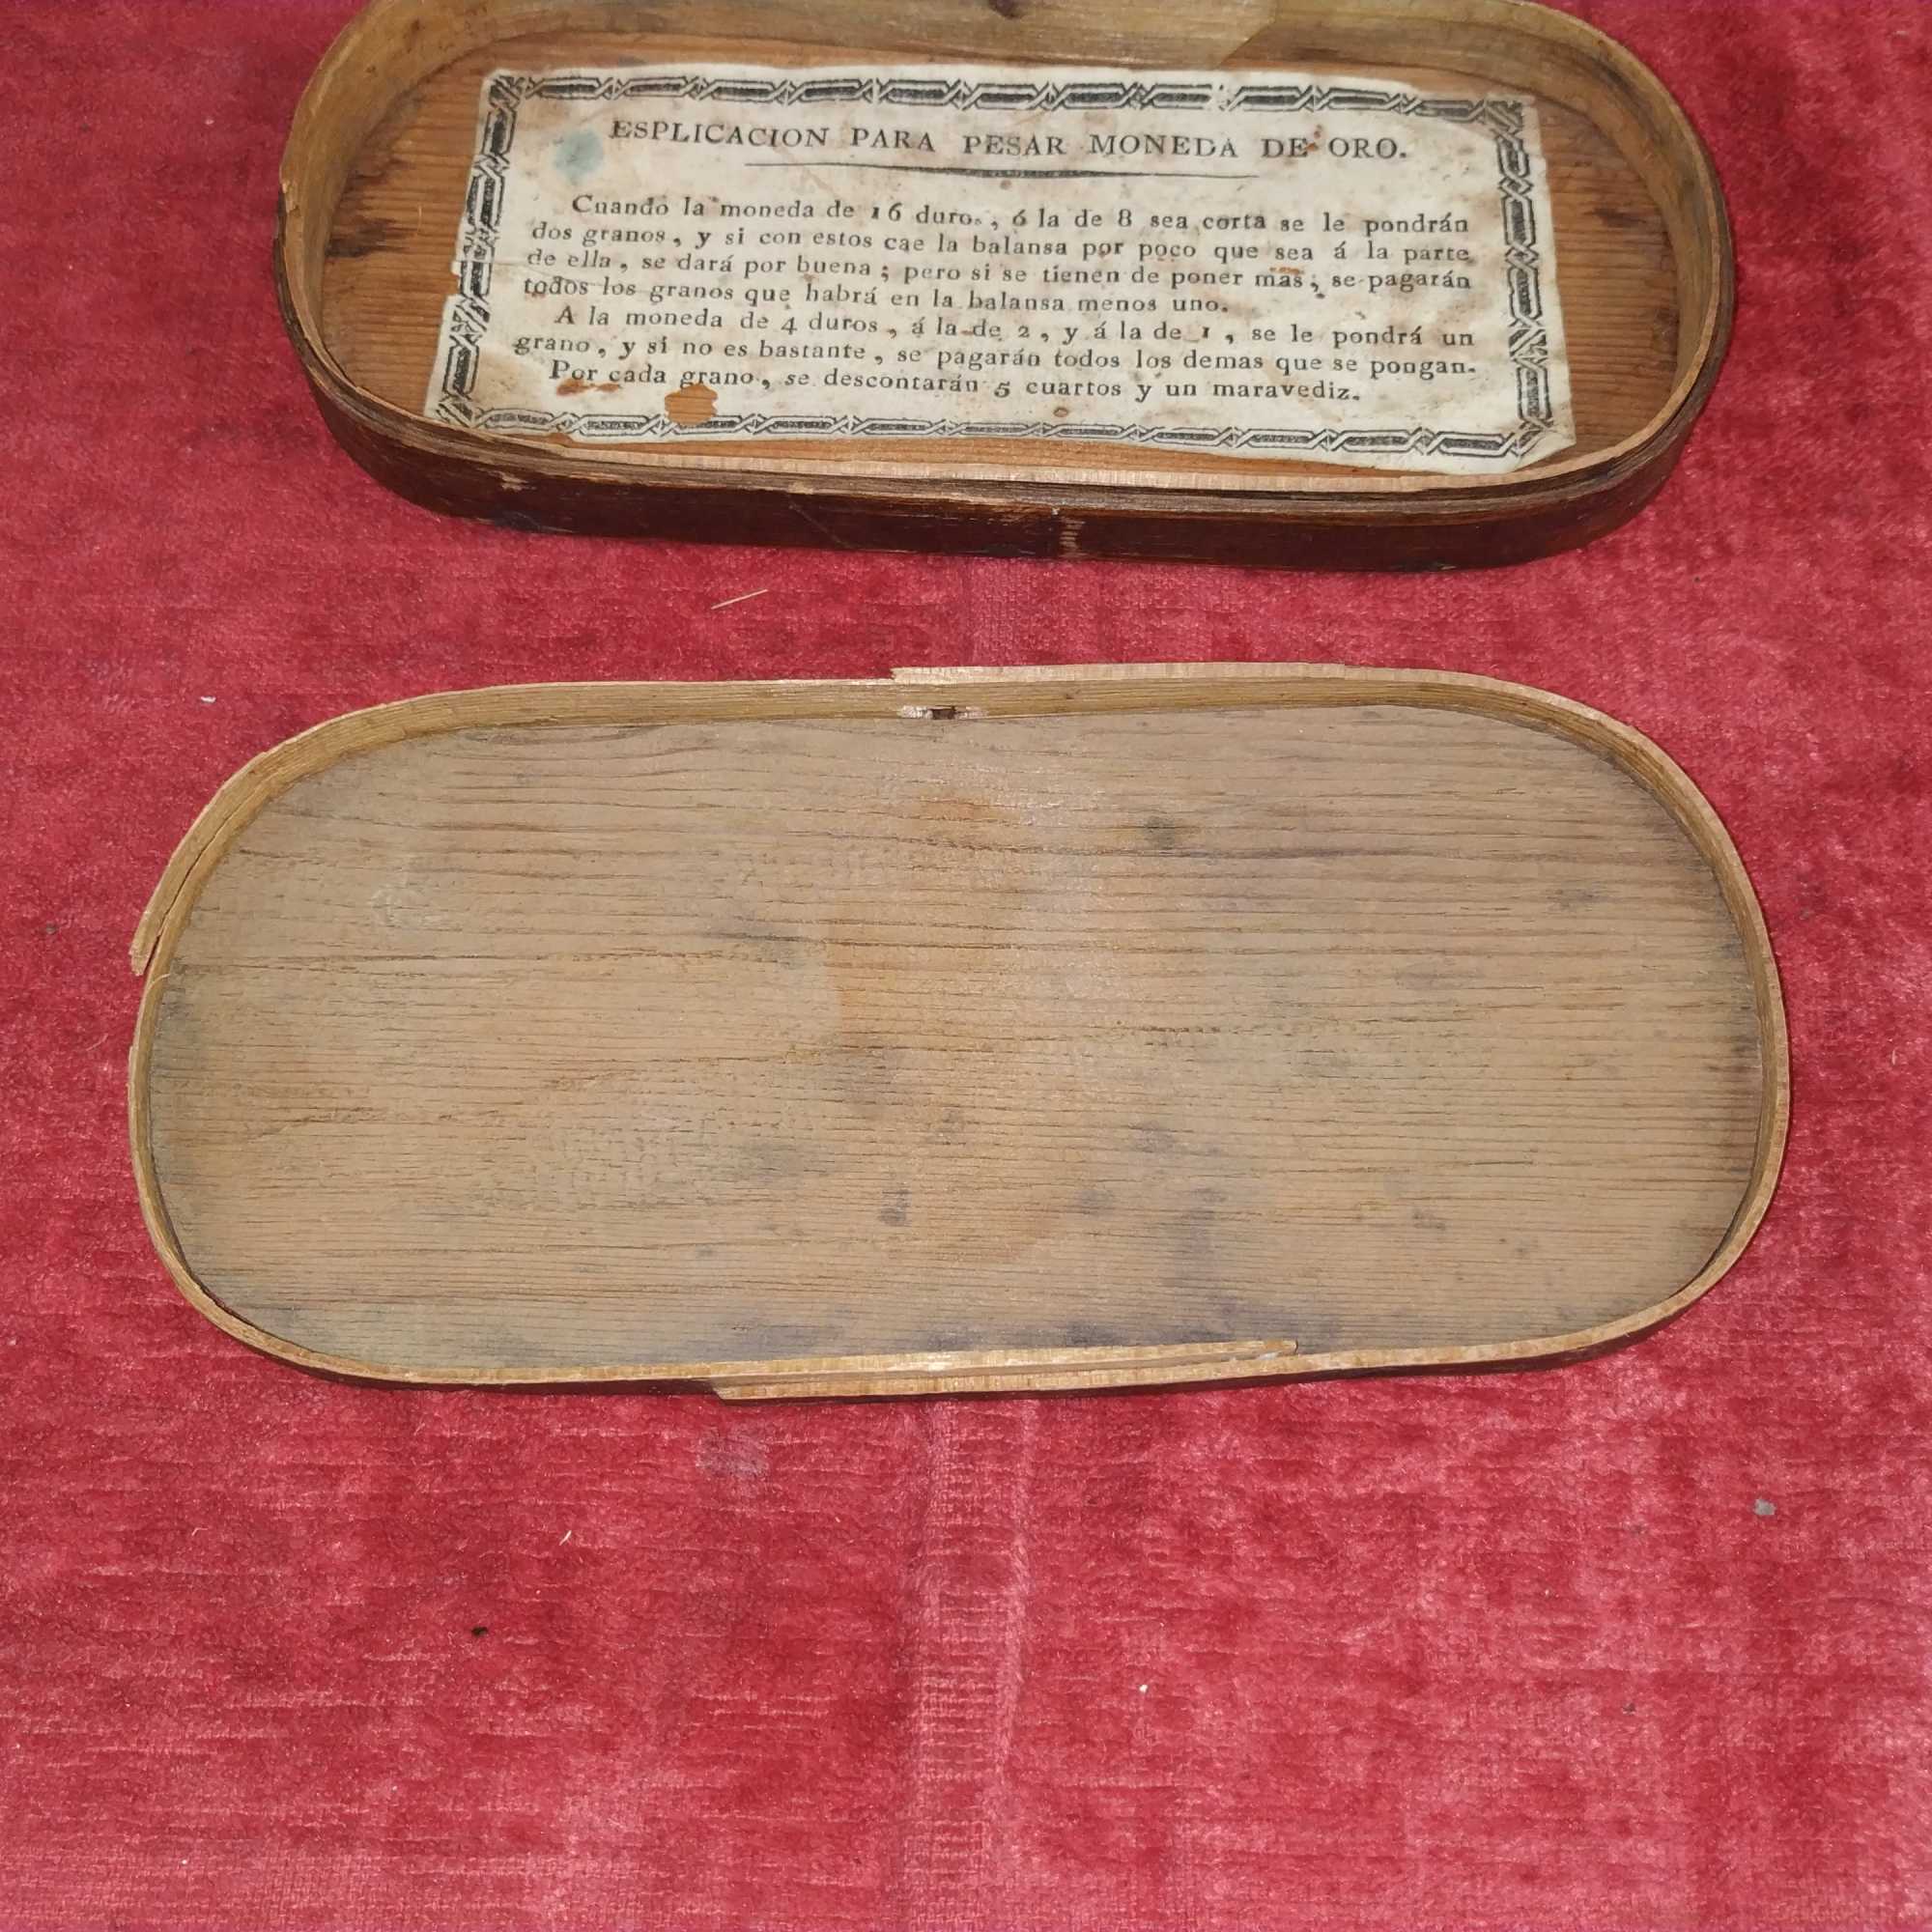 ESPLICACION PARA PESAR MONEDA DE ORO.
Cuando la moneda de 16 duros, ó la de 8 sea corta se le pondrán
dos granos, y si con estos cae la balansa por poco que sea á la parte
de ella, se dará por buena; pero si se tienen de poner mas, se pagarán
todos los granos que habrá en la balansa menos uno.
A la moneda de 4 duros, á la de 2, y á la de 1, se le pondrá un
grano, y si no es bastante, se pagarán todos los demas que se pongan.
Por cada grano, se descontarán 5 cuartos y un maravediz.